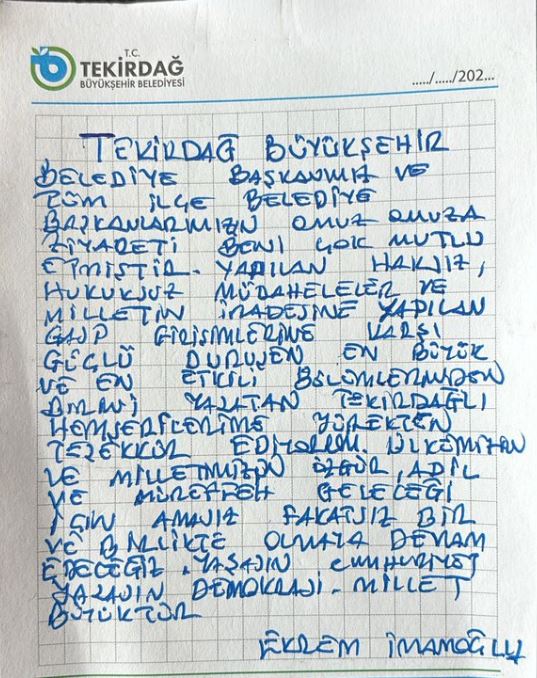 T.C.
TEKİRDAĞ
BÜYÜKŞEHİR BELEDİYESİ
...../...../202...
TEKİRDAĞ BÜYÜKŞEHİR
BELEDİYE BAŞKANIMIZ VE
TÜM İLÇE BELEDİYE
BAŞKANLARIMIZIN OMUZ OMUZA
ZİYARETİ BENİ ÇOK MUTLU
ETMİŞTİR. YAPILAN HAKSIZ,
HUKUKSUZ MÜDAHELELER VE
MİLLETİN İRADESİNE YAPILAN
GASP GİRİŞİMLERİNE KARŞI
GÜÇLÜ DURUŞUN EN BÜYÜK
VE EN ETKİLİ BÖLÜMLERİNDEN
BİRİNİ YAŞATAN TEKİRDAĞLI
HEMŞERİLERİME YÜREKTEN
TEŞEKKÜR EDİYORUM. ÜLKEMİZİN
VE MİLLETİMİZİN ÖZGÜR, ADİL
VE MÜREFFEH GELECEĞİ
İÇİN AMASIZ FAKATSIZ BİR
VE BİRLİKTE OLMAYA DEVAM
EDECEĞİZ. YAŞASIN CUMHURİYET
YAŞASIN DEMOKRASİ. MİLLET
BÜYÜKTÜR
EKREM İMAMOĞLU